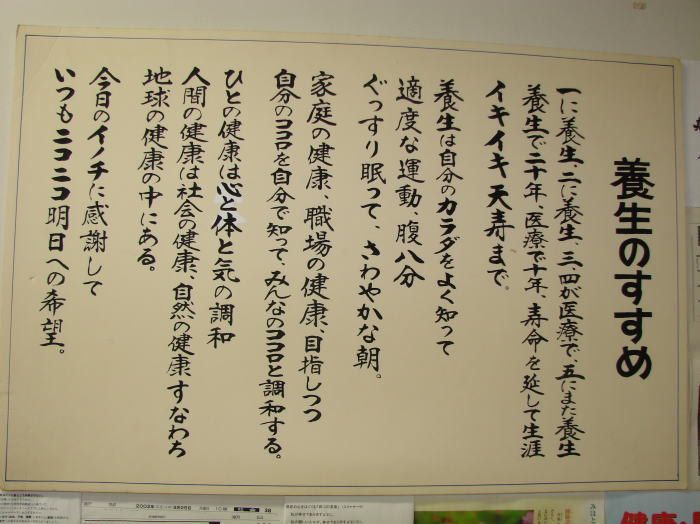 養生のすすめ
一に養生、二に養生、三、四が医療で、五にまた養生
養生で二十年、医療で十年、寿命を延して生涯
イキイキ天寿まで。
養生は自分のカラダをよく知って
適度な運動、腹八分
ぐっすり眠って、さわやかな朝。
家庭の健康、職場の健康、目指しつつ
自分のココロを自分で知って、みんなのココロと調和する。
ひとの健康は心と体と気の調和
人間の健康は社会の健康、自然の健康すなわち
地球の健康の中にある。
今日のイノチに感謝して
いつもニコニコ明日への希望。
健康